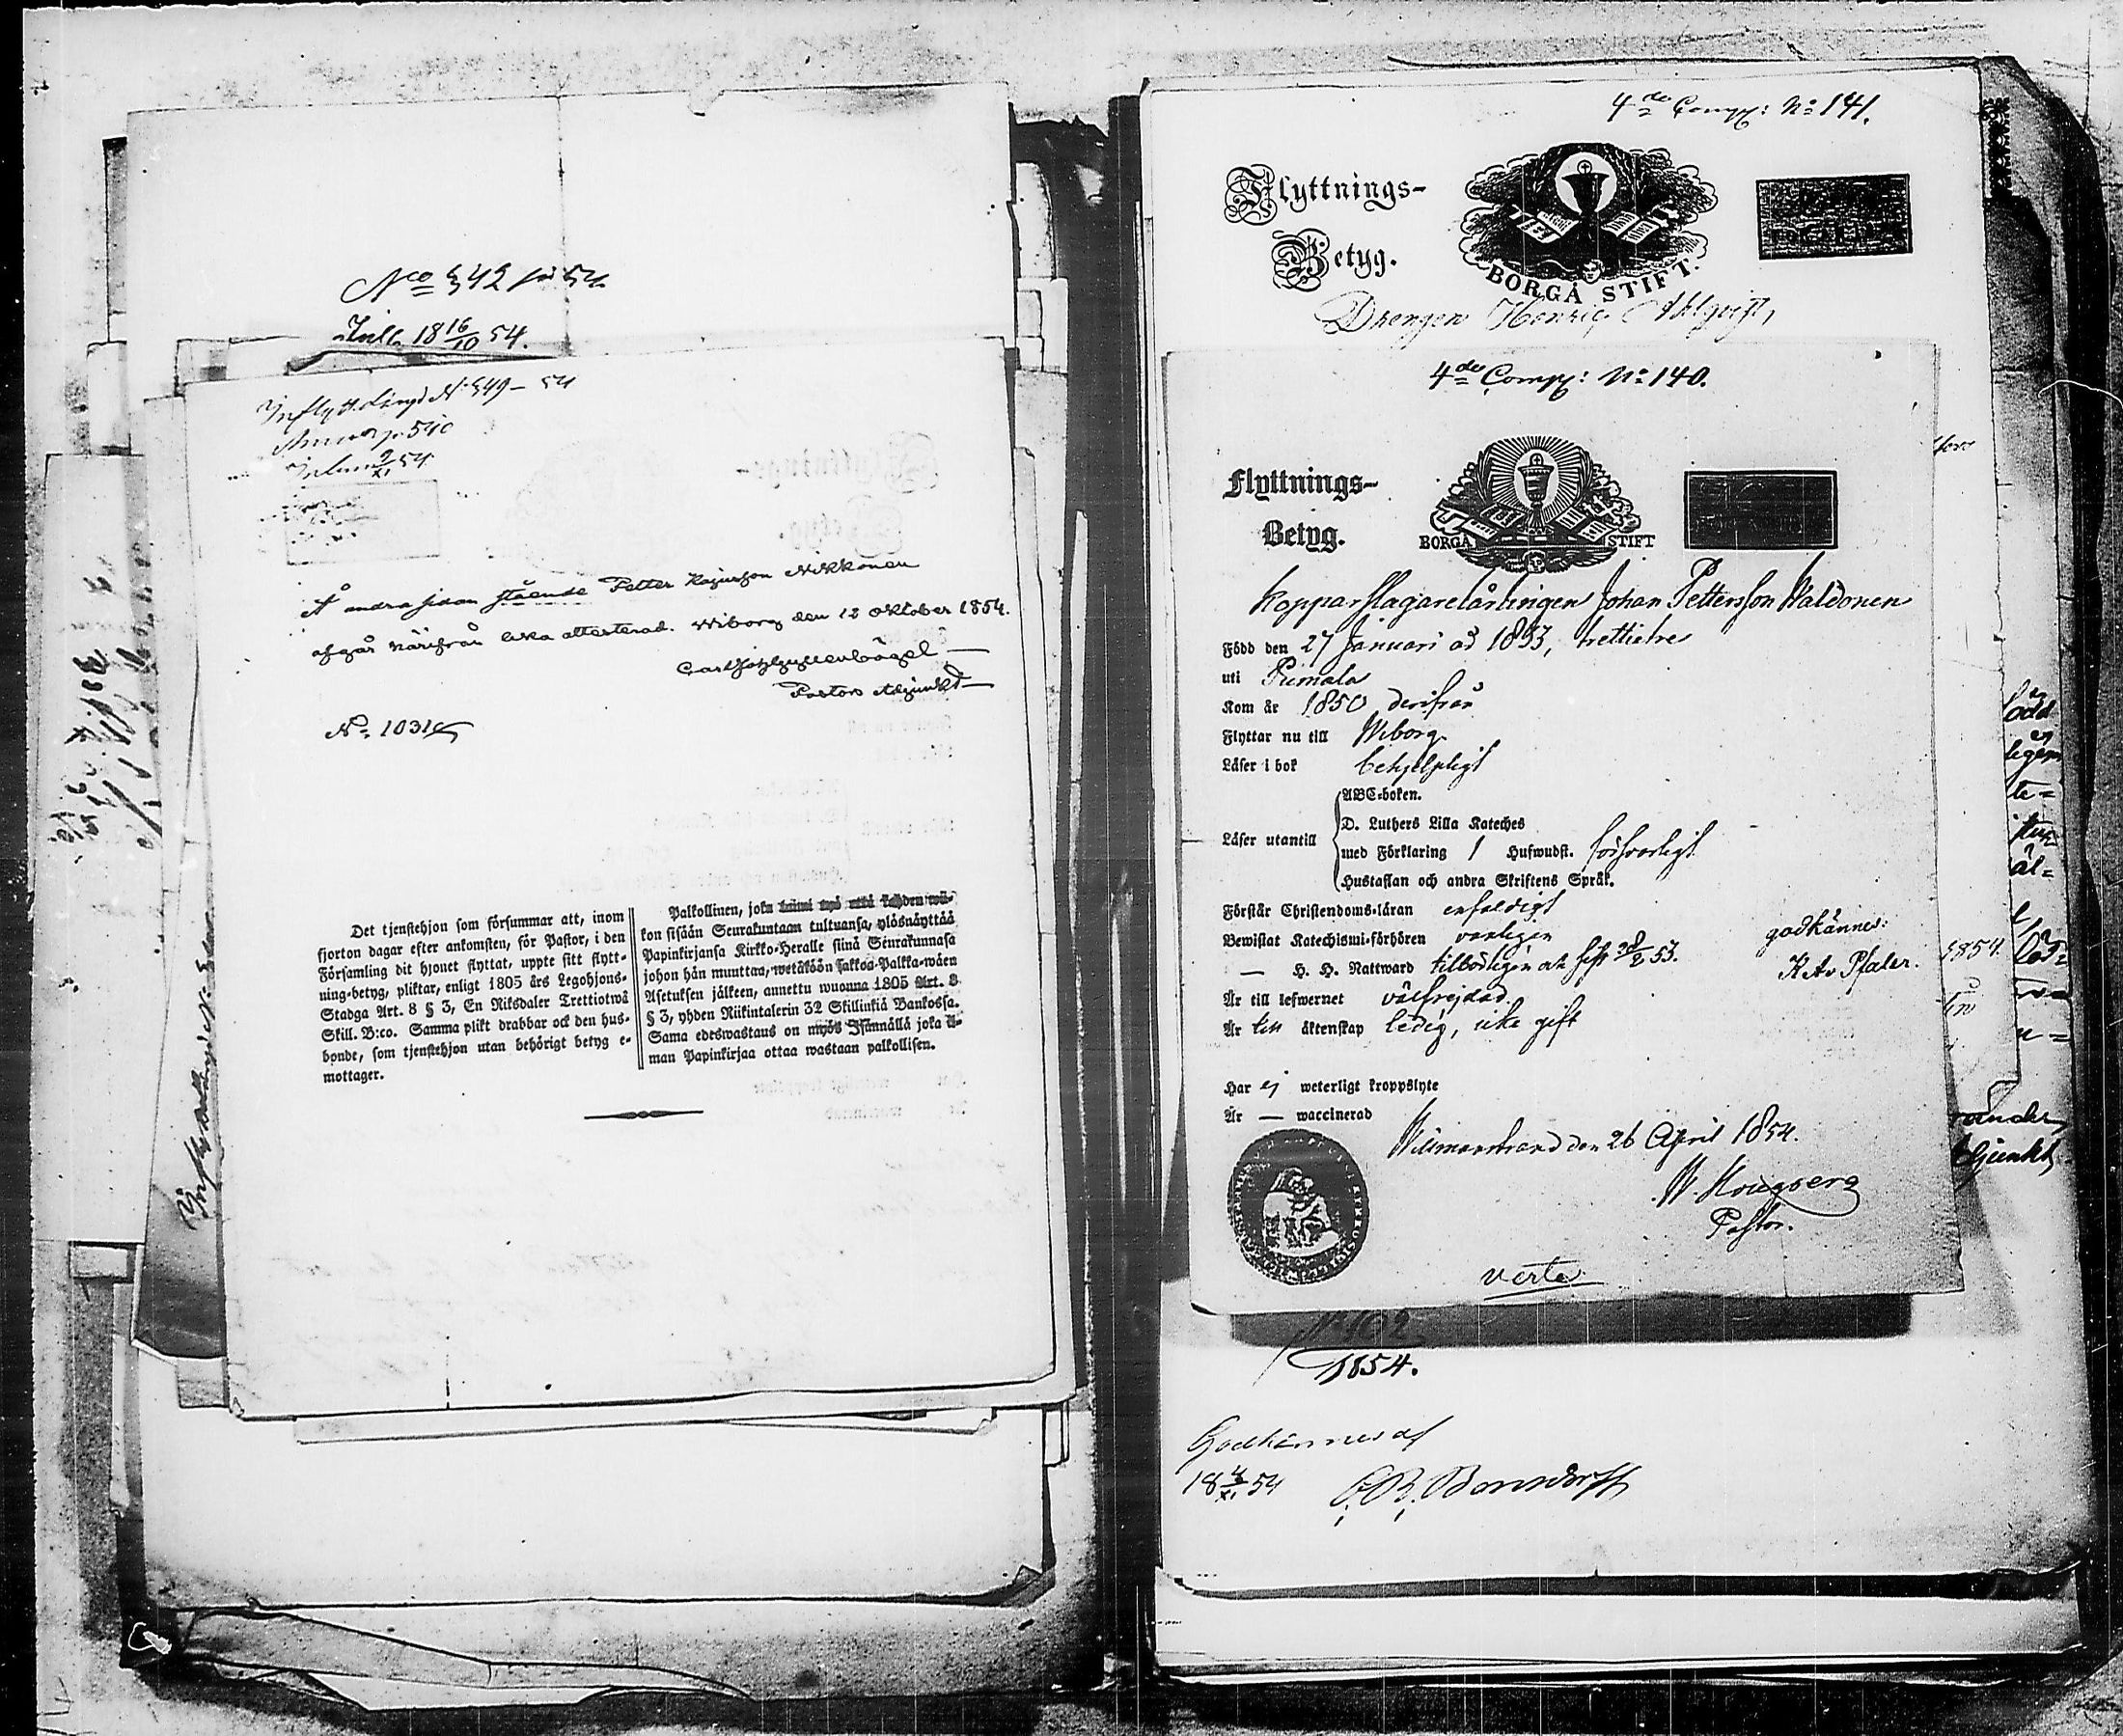 No 542 för 54.
Inl. 18 16/10 54.
Inflytt. Längd No 549 – 54
540
2/XI 54
Å andra sidan stående Petter Kajusson Nikkonen
afgår härifrån lika attesterad. Wiborg den 12 Oktober 1854.
Pastors Adjunkt
No 1031
Det tjenstehjon som försummar att, inom
fjorton dagar efter ankomsten, för Pastor, i den
Församling dit hjonet flyttat, uppte sitt flytt-
ning-betyg, pliktar, enligt 1805 års Legohjons-
Stadga Art. 8 § 3, En Riksdaler Trettiotwå
Skill. B:co. Samma plikt drabbar ock den hus-
bonde, som tjenstehjon utan behörigt betyg e-
mottager.
Palkollinen, joka kahden wii-
kon sisään Seurakuntaan tultuansa, ylösnäyttää
Papinkirjansa Kirkko-Heralle siinä Seurakunnasa
johon hän muuttaa, wetäköön sakkoa Palkka-wäen
Asetuksen jälkeen, annettu wuonna 1805 Art. 8
§ 3, yhden Riikintalerin 32 Skillinkiä Bankossa.
Sama edeswastaus on myös Isännällä joka il-
man Papinkirjaa ottaa wastaan palkollisen.
4de Comp: No 141.
Flyttnings-
Betyg.
BORGÅ STIFT.
Drengen Henric Ahlqvist,
4de Comp: No 140.
Flyttnings-
Betyg.
BORGÅ STIFT
Kopparslagarelärlingen Johan Pettersson Waldonen
Född den 27 Januari år 1833, trettietre
uti Pumala
Kom år 1850 derifrån
Flyttar nu till Wiborg
Läser i bok behjelpligt
ABC-boken.
D. Luthers Lilla Kateches
Läser utantill med Förklaring 1 Hufwudst. försvarligt
Hustaflan och andra Skriftens Språk.
Förstår Christendoms-läran enfaldigt
Bewistat Katechismi-förhören vanligen
godkännes:
— H. H. Nattward tilbörligen och sist 53.
K Av Pfaler.
Är till lefwernet välfrejdad.
Är till äktenskap ledig, icke gift
Har ej weterligt kroppslyte
Är — waccinerad
Willmanstrand den 26 April 1854.
W. Hougberg
Pastor.
verte
No 102
1854.
Godkännes af
18 4/XI 54 C. B. Bonsdorff